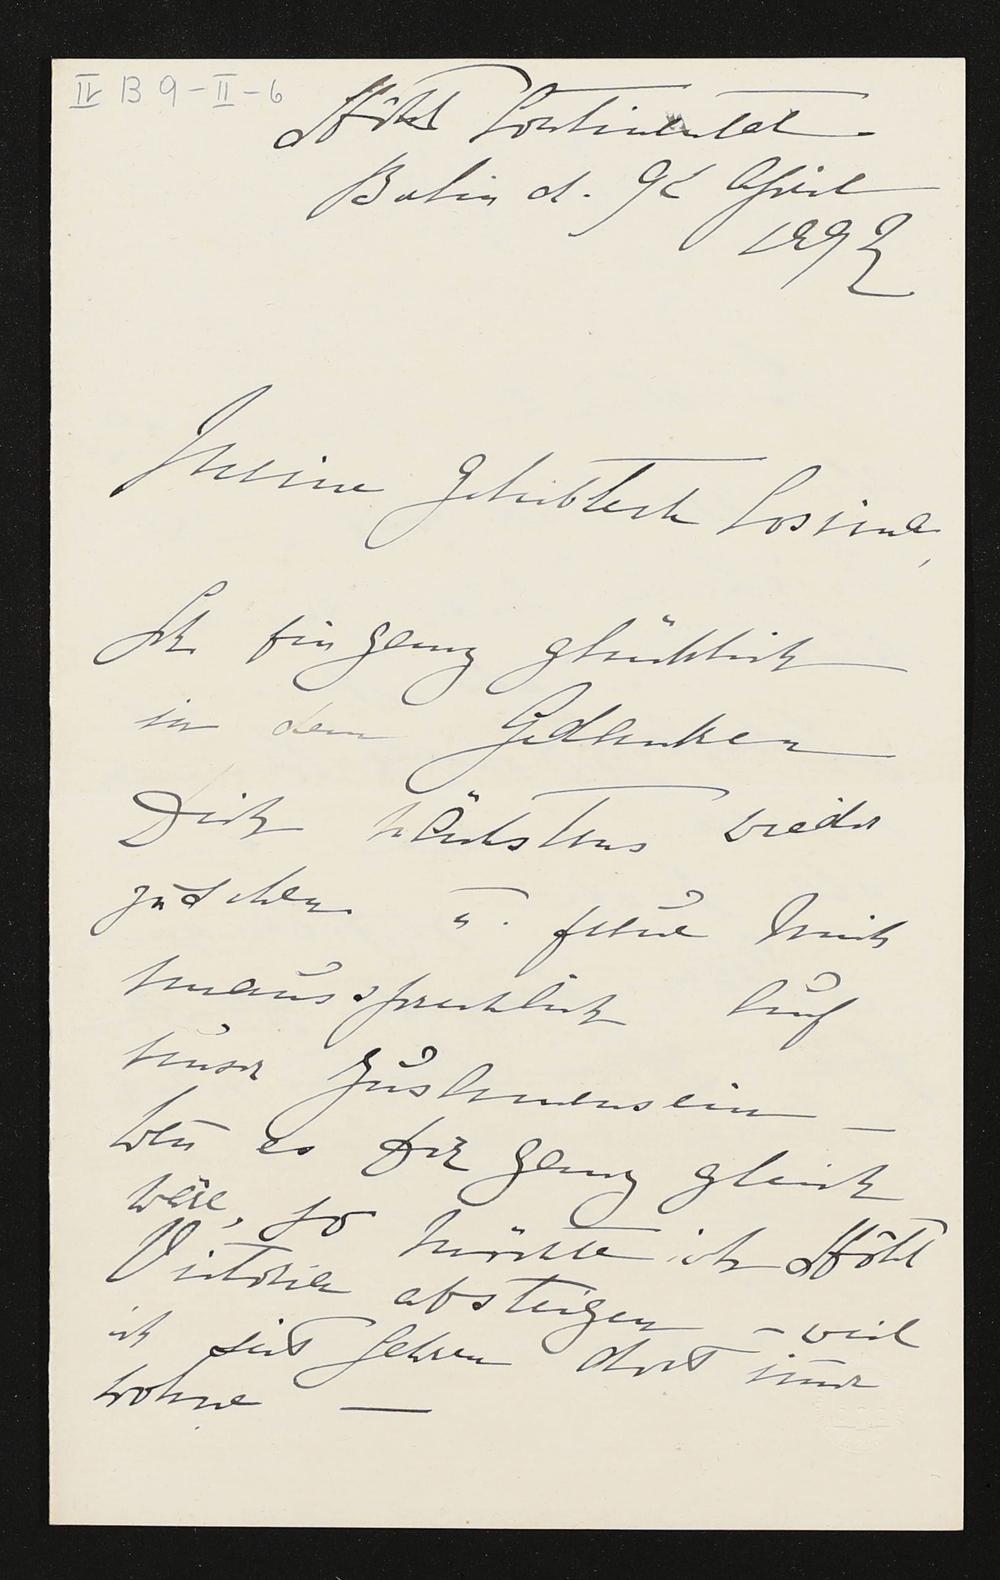 IV B 9-II-6
Hôtel Continental
Berlin d. 9t April
1892
Meine geliebteste Cosima,
Ich bin ganz glücklich
in dem Gedanken
Dich nächstens wieder
zu sehen u. freue mich
unaussprechlich auf
unser Zusam̄ensein —
Wen̄ es Dir ganz gleich
wäre, so möchte ich Hôtel
Victoria absteigen – weil
ich seit Jahren dort im̄er
wohne —